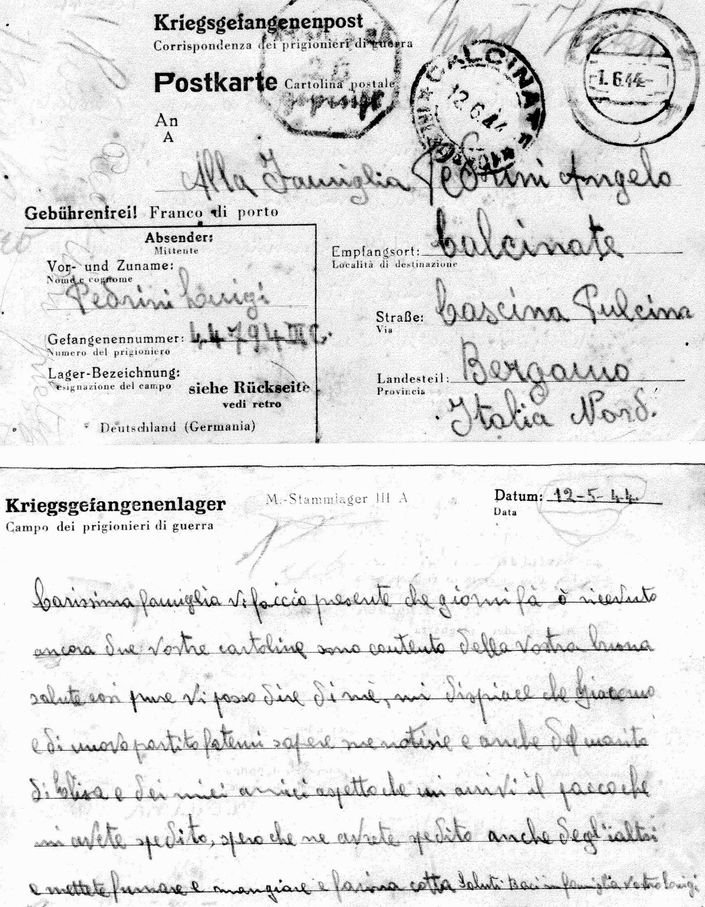 Kriegsgefangenenpost
Corrispondenza dei prigionieri di guerra
Postkarte Cartolina postale
CALCINATE
12.6.44
1.6.44
An
A
Alla Famiglia Pedrini Angelo
Gebührenfrei! Franco di porto
Absender:
Mittente
Vor- und Zuname:
Nome e cognome
Pedrini Luigi
Gefangenennummer: 44794 III C.
Numero del prigioniero
Lager-Bezeichnung:
esignazione del campo
siehe Rückseite
vedi retro
Deutschland (Germania)
Empfangsort: Calcinate
Località di destinazione
Straße: Cascina Pulcina
Via
Landesteil: Bergamo
Provincia
Italia Nord.
Kriegsgefangenenlager M.-Stammlager III A Datum: 12-5-44.
Campo dei prigionieri di guerra Data
Carissima famiglia vi faccio presente che giorni fa ò ricevuto
ancora due vostre cartoline sono contento della vostra buona
salute cosi pure vi posso dire di me, mi dispiace che Giacomo
e di nuovo partito fatemi sapere sue notisie e anche del marito
di Elisa e dei miei amici aspetto che mi arrivi il pacco che
mi avete spedito, spero che ne avrete spedito anche degl'ialtri
e mettete fumare e mangiare e farina cotta Saluti Baci in famiglia vostro Luigi